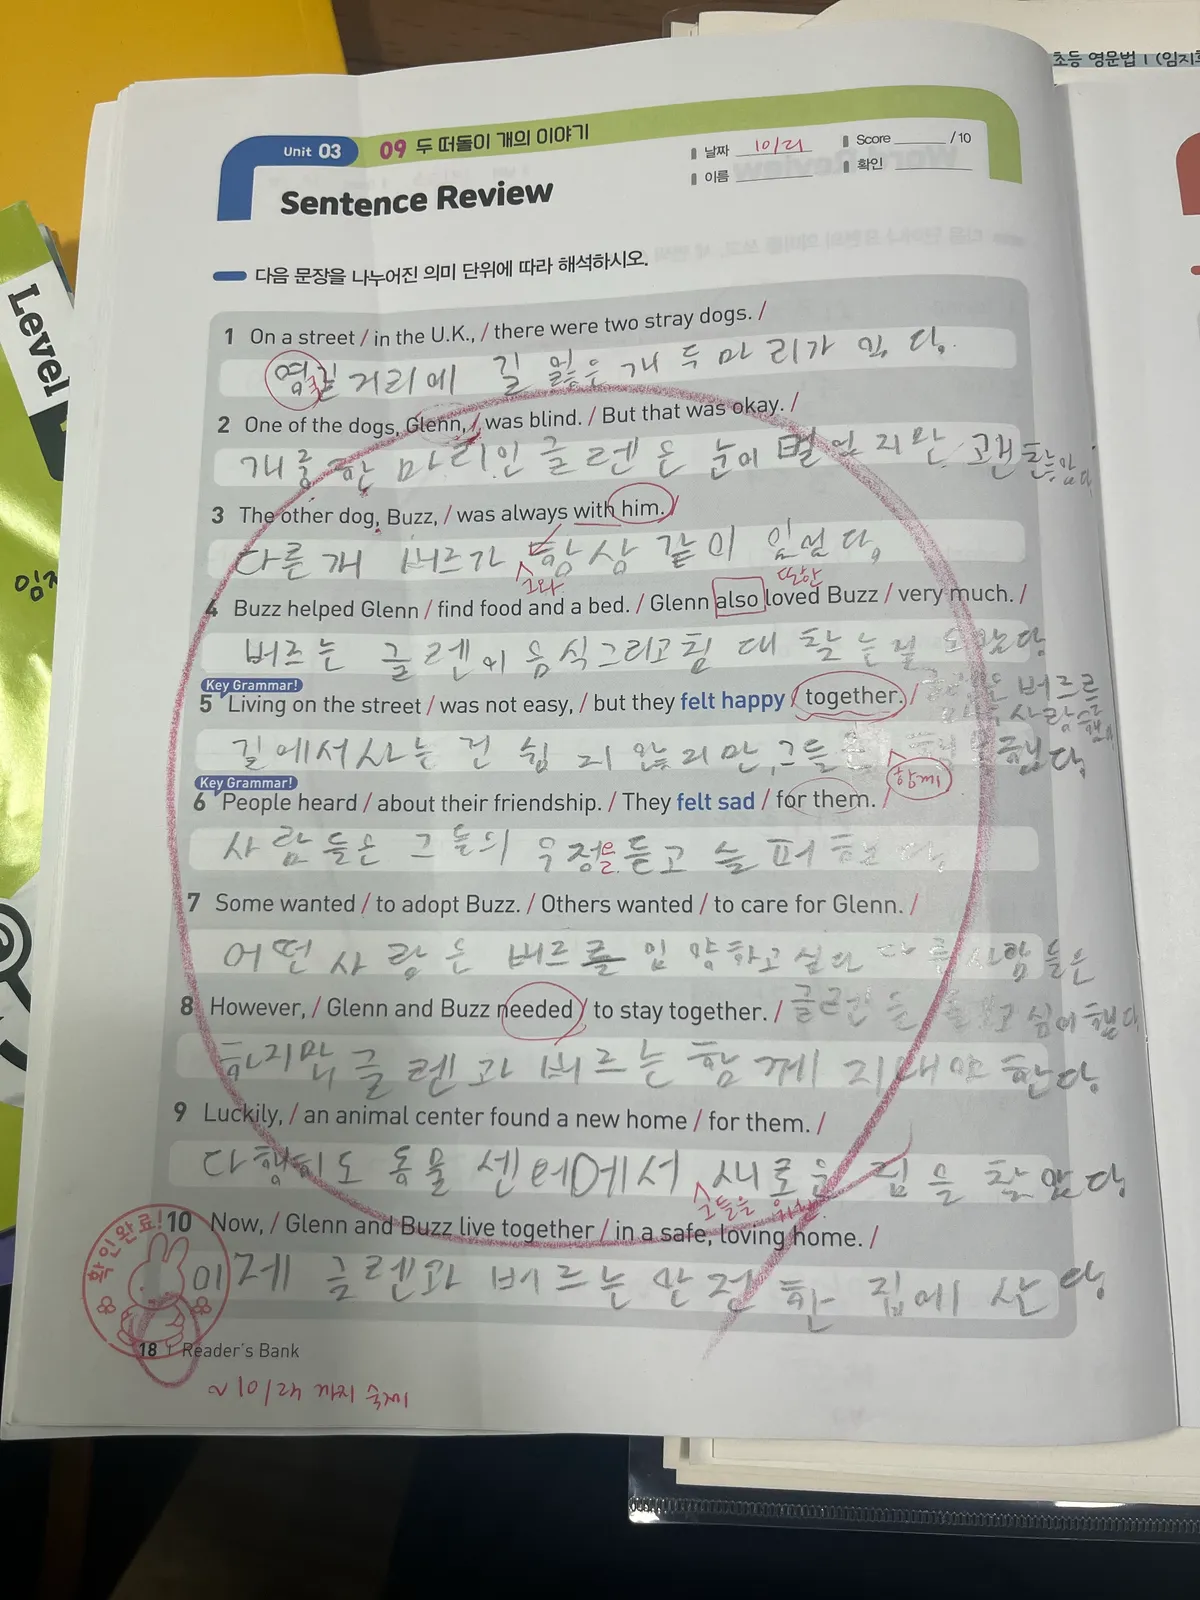 초등 영문법 1 (임지후
Unit 03 09 두 떠돌이 개의 이야기
날짜 10/21 Score /10
이름 확인
Sentence Review
다음 문장을 나누어진 의미 단위에 따라 해석하시오.
Level
1 On a street / in the U.K., / there were two stray dogs. /
거리에 길 잃은 개 두 마리가 있다.
2 One of the dogs, Glenn, / was blind. / But that was okay. /
개중 한 마리인 글렌은 눈이 멀었지만 괜찮았다
3 The other dog, Buzz, / was always with him. /
다른 개 버즈가 항상 같이 있었다.
그와
또한
4 Buzz helped Glenn / find food and a bed. / Glenn also loved Buzz / very much. /
버즈는 글렌이 음식그리고 침대 찾는걸 도왔다
Key Grammar!
5 Living on the street / was not easy, / but they felt happy / together. /
길에서 사는 건 쉽지 않지만, 그들은
함께
Key Grammar!
6 People heard / about their friendship. / They felt sad / for them. /
사람들은 그들의 우정을 듣고 슬퍼했다
7 Some wanted / to adopt Buzz. / Others wanted / to care for Glenn. /
어떤 사람은 버즈를 입양하고 싶다 다른 사람들은
8 However, / Glenn and Buzz needed / to stay together. /
하지만 글렌과 버즈는 함께 지내야 한다.
9 Luckily, / an animal center found a new home / for them. /
다행히도 동물 센터에서 새로운 집을 찾았다
그들을 위한
10 Now, / Glenn and Buzz live together / in a safe, loving home. /
이제 글렌과 버즈는 안전한 집에 산다
확인완료!
18 Reader's Bank
~10/24 까지 숙제